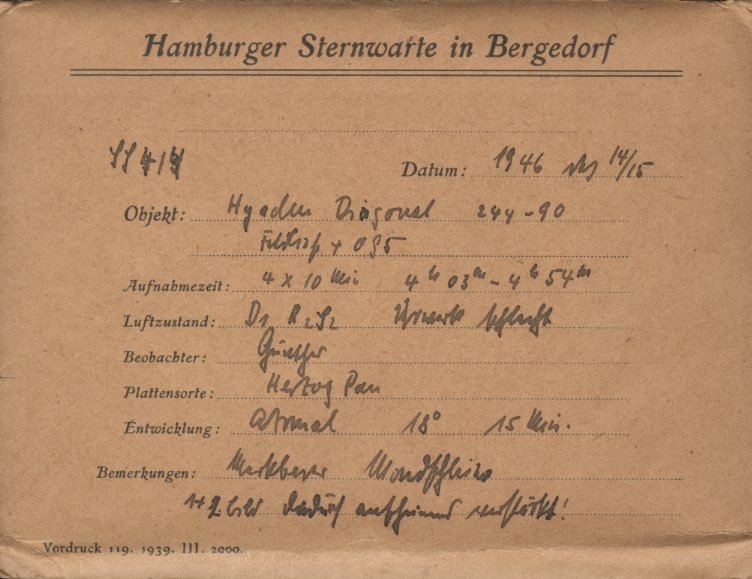 Hamburger Sternwarte in Bergedorf
Datum: 1946 14/15
Objekt: Hyaden Diagonal 244-90
Aufnahmezeit: 4 x 10 Min 4 h 03 m - 4 h 54 m
Luftzustand: D1 R2S2 Uhrwerk schlecht
Beobachter: Günther
Plattensorte: Hertzog Pan
Entwicklung: Atomal 18° 15 Min.
Bemerkungen: Merkbarer Mondschein
1+2 Bild dadurch anscheinend verstärkt!
Vordruck 119. 1939. III. 2000.